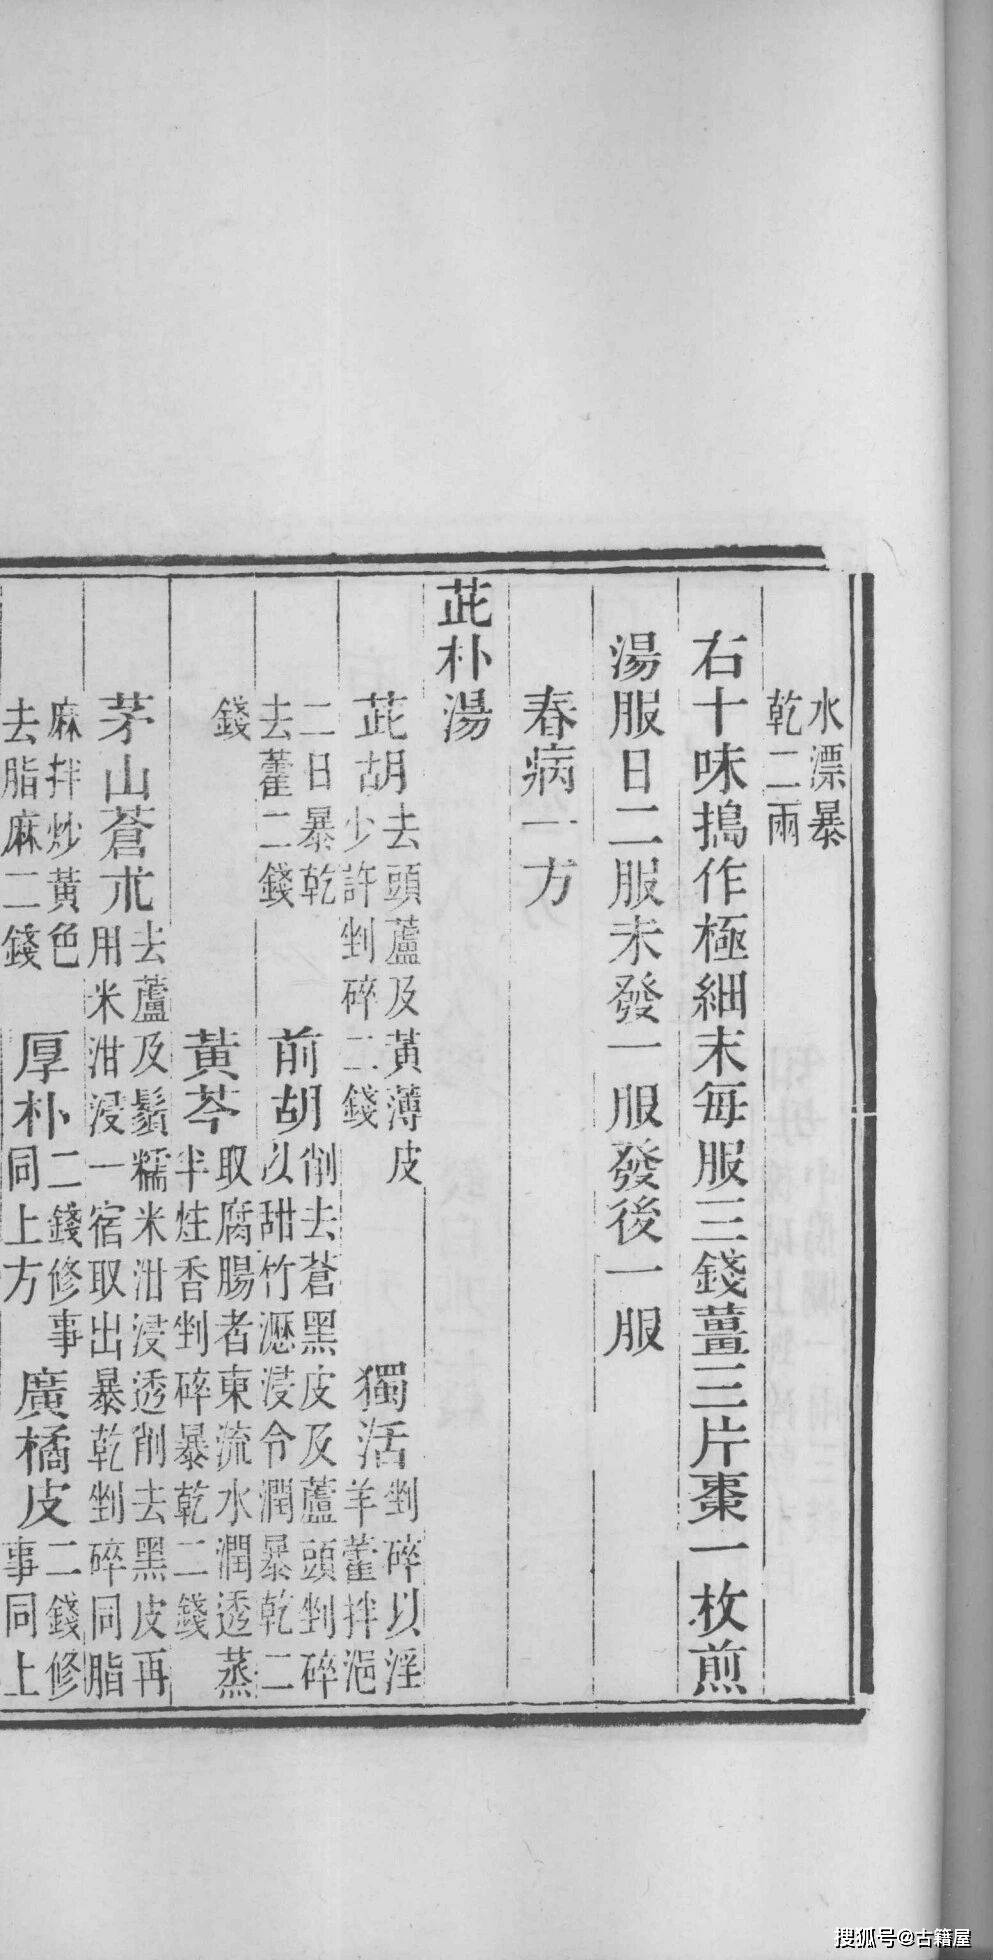 水漂暴
乾二兩
右十味搗作極細末每服三錢薑三片棗一枚煎
湯服日二服未發一服發後一服
春病一方
茈朴湯
茈胡
去頭蘆及黃薄皮
少許剉碎二錢
獨活
剉碎以淫
羊藿拌浥
二日暴乾
去藿二錢
前胡
削去蒼黑皮及蘆頭剉碎
以甜竹瀝浸令潤暴乾二
錢
黃芩
取腐腸者東流水潤透蒸
半炷香剉碎暴乾二錢
茅山蒼朮
去蘆及鬚糯米泔浸透削去黑皮再
用米泔浸一宿取出暴乾剉碎同脂
麻拌炒黃色
去脂麻二錢
厚朴
二錢修事
同上方
廣橘皮
二錢修
事同上
搜狐号@古籍屋